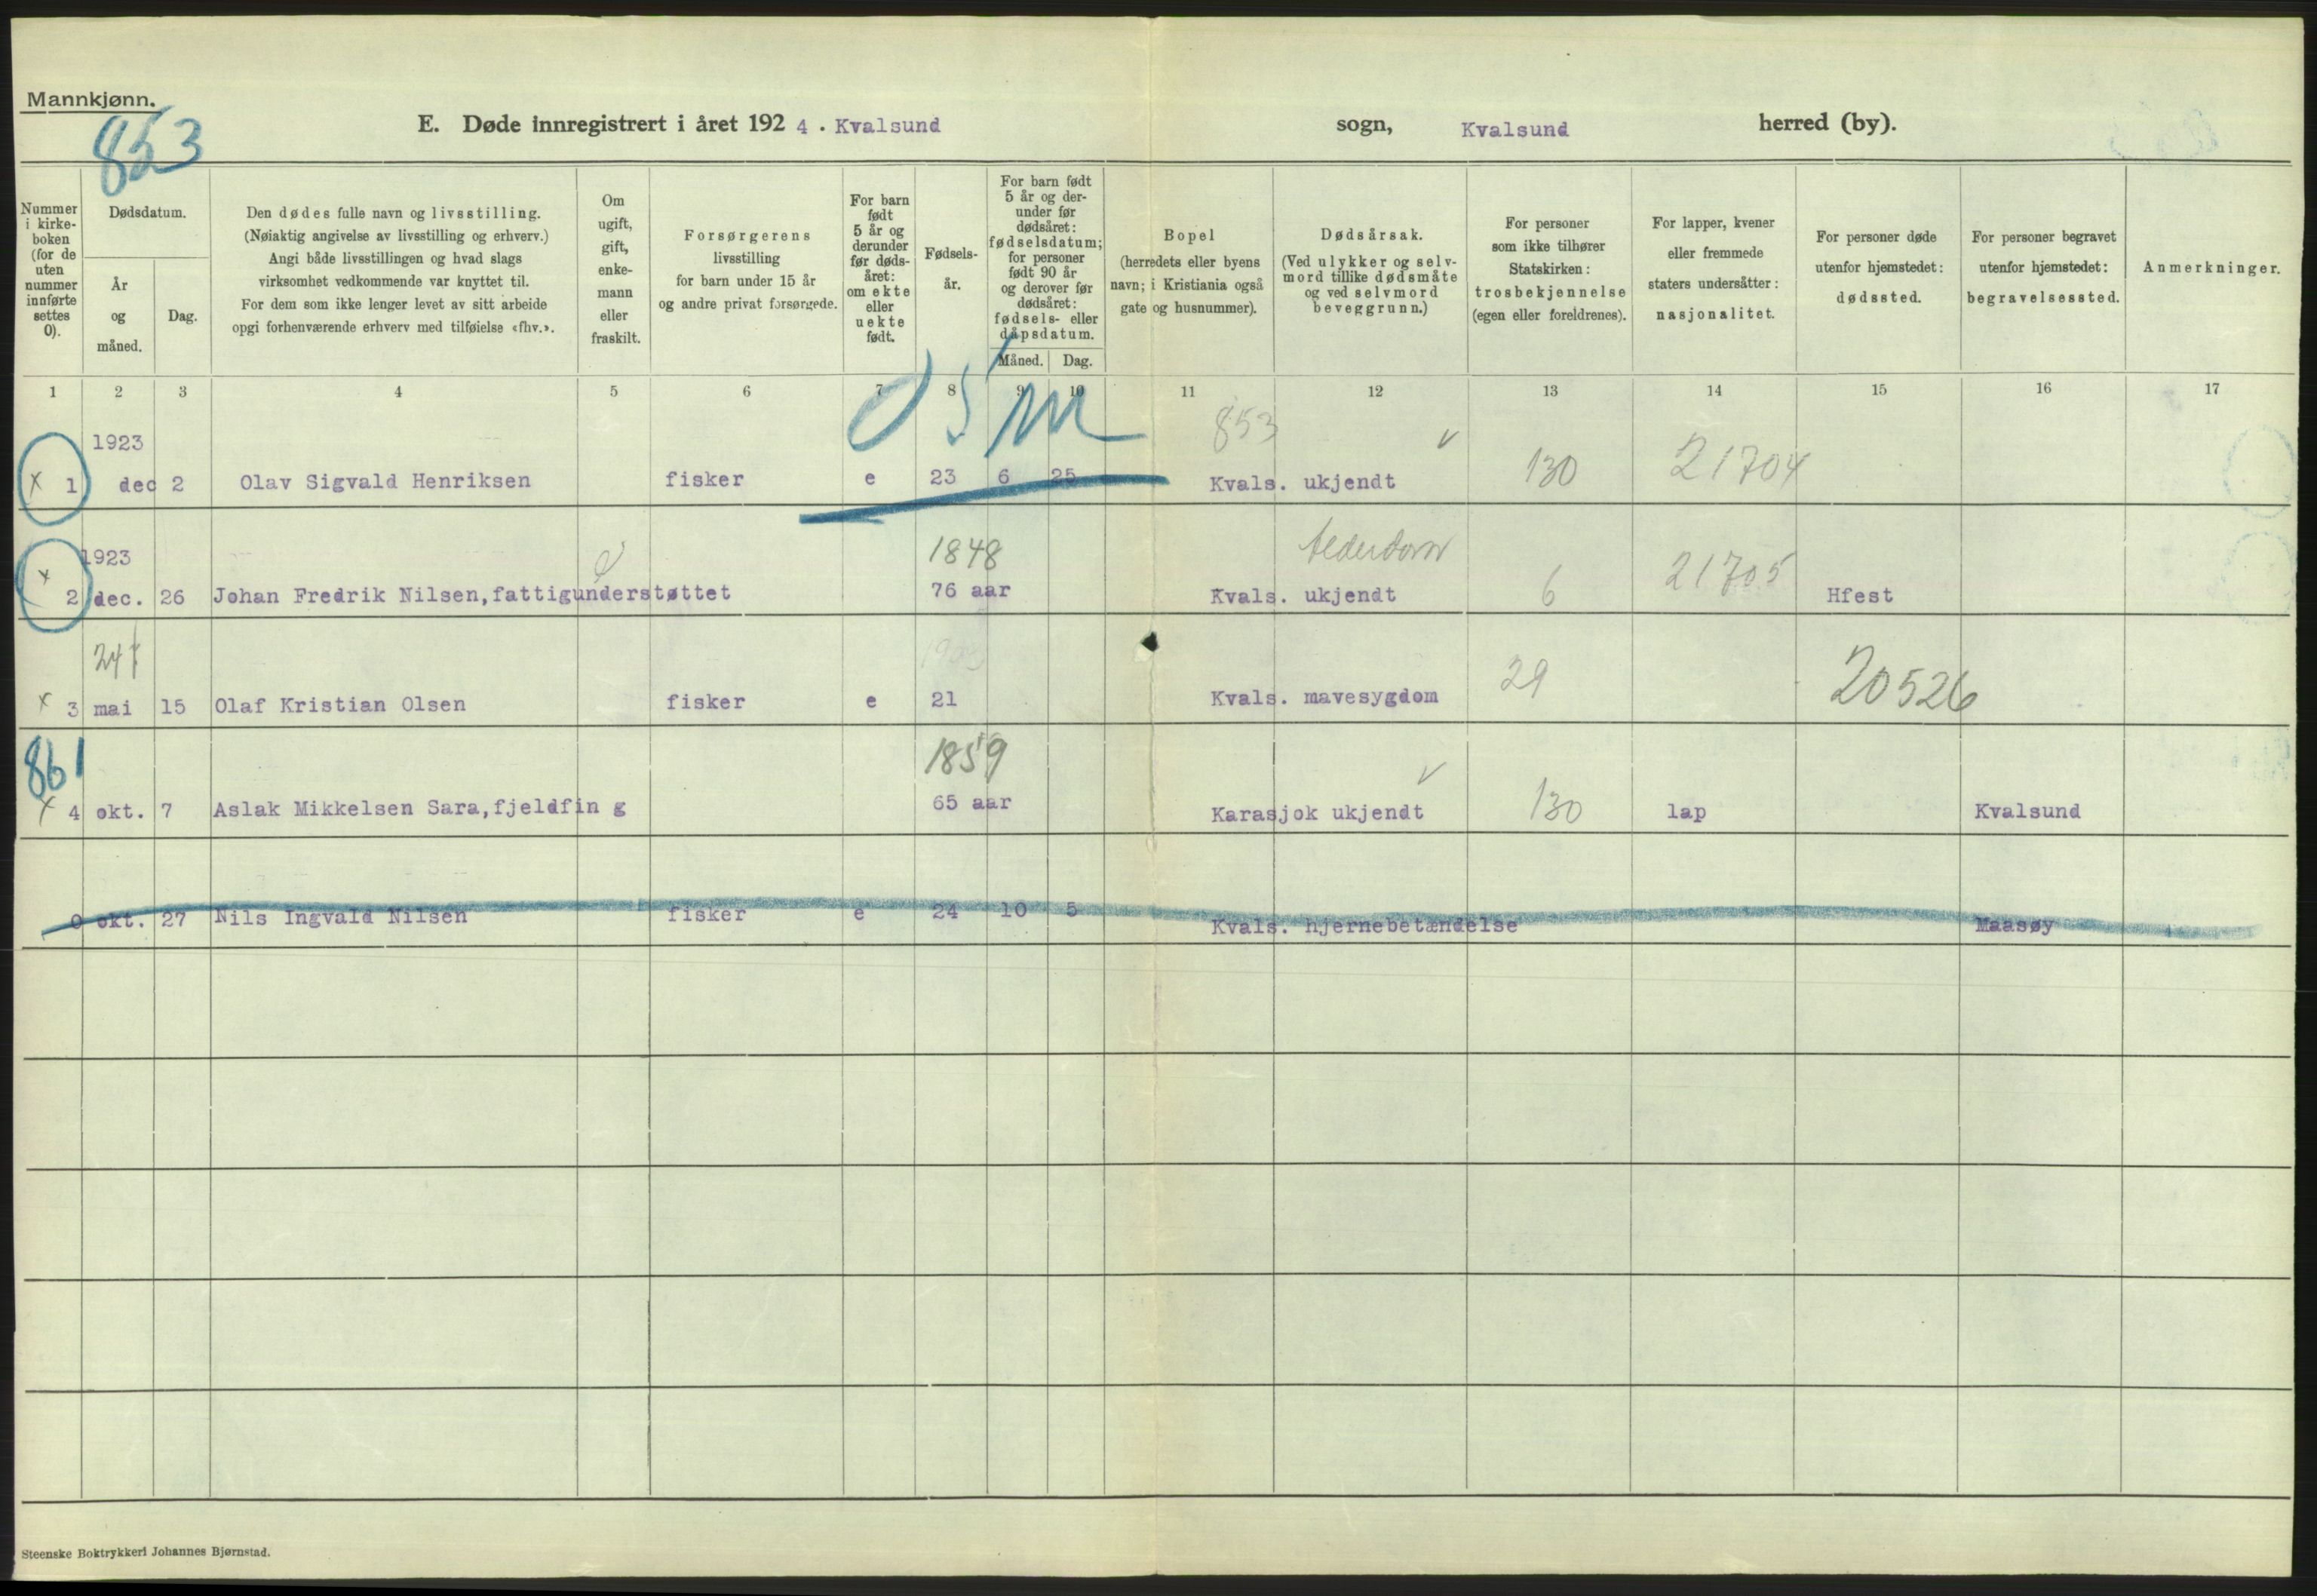 Mannkjønn.
853
E. Døde innregistrert i året 192 4 . Kvalsund sogn, Kvalsund herred (by).
Nummer i kirke-
boken
(for de
uten
nummer
innførte
settes
0).
Dødsdatum.
År
og
måned.
Dag.
Den dødes fulle navn og livsstilling.
(Nøiaktig angivelse av livsstilling og erhverv.)
Angi både livsstillingen og hvad slags
virksomhet vedkommende var knyttet til.
For dem som ikke lenger levet av sitt arbeide
opgi forhenværende erhverv med tilføielse «fhv.».
Om
ugift,
gift,
enke-
mann
eller
fraskilt.
Forsørgerens
livsstilling
for barn under 15 år
og andre privat forsørgede.
For barn
født
5 år og
derunder
før døds-
året:
om ekte
eller
uekte
født.
Fødsels-
år.
For barn født
5 år og der-
under før
dødsåret:
fødselsdatum;
for personer
født 90 år
og derover før
dødsåret:
fødsels- eller
dåpsdatum.
Måned. Dag.
Bopel
(herredets eller byens
navn; i Kristiania også
gate og husnummer).
Dødsårsak.
(Ved ulykker og selv-
mord tillike dødsmåte
og ved selvmord
beveggrunn.)
For personer
som ikke tilhører
Statskirken:
trosbekjennelse
(egen eller foreldrenes).
For lapper, kvener
eller fremmede
staters undersåtter:
nasjonalitet.
For personer døde
utenfor hjemstedet:
dødssted.
For personer begravet
utenfor hjemstedet:
begravelsessted.
Anmerkninger.
1 2 3 4 5 6 7 8 9 10 11 12 13 14 15 16 17
1923 853 ✓
x 1 dec 2 Olav Sigvald Henriksen fisker e 23 6 25 Kvals. ukjendt 130 21704
1923 1848
x 2 dec. 26 Johan Fredrik Nilsen,fattigunderstøttet 76 aar Kvals. ukjendt 6 21705 Hfest
24
x 3 mai 15 Olaf Kristian Olsen fisker e 21 Kvals. mavesygdom 29 20526
861 1859 ✓
x 4 okt. 7 Aslak Mikkelsen Sara,fjeldfin g 65 aar Karasjok ukjendt 130 lap Kvalsund
0 okt. 27 Nils Ingvald Nilsen fisker e 24 10 5 Kvals. hjernebetændelse Maasøy
Steenske Boktrykkeri Johannes Bjørnstad.